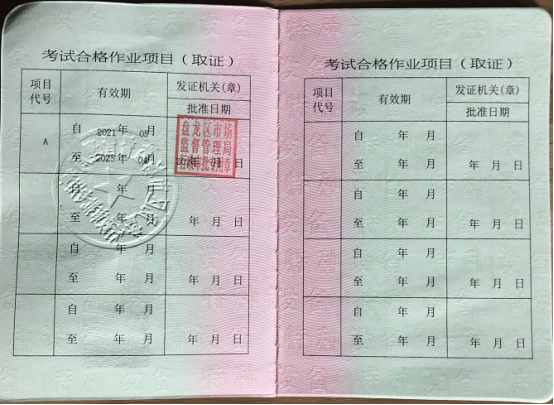 考试合格作业项目（取证）
项目代号
有效期
发证机关(章)
批准日期
A
自 2021年 05月
至 2025年 04月
盘龙区市场
监督管理局
年 月 日
自 年 月
至 年 月
年 月 日
自 年 月
至 年 月
年 月 日
自 年 月
至 年 月
年 月 日
考试合格作业项目（取证）
项目代号
有效期
发证机关(章)
批准日期
自 年 月
至 年 月
年 月 日
自 年 月
至 年 月
年 月 日
自 年 月
至 年 月
年 月 日
自 年 月
至 年 月
年 月 日